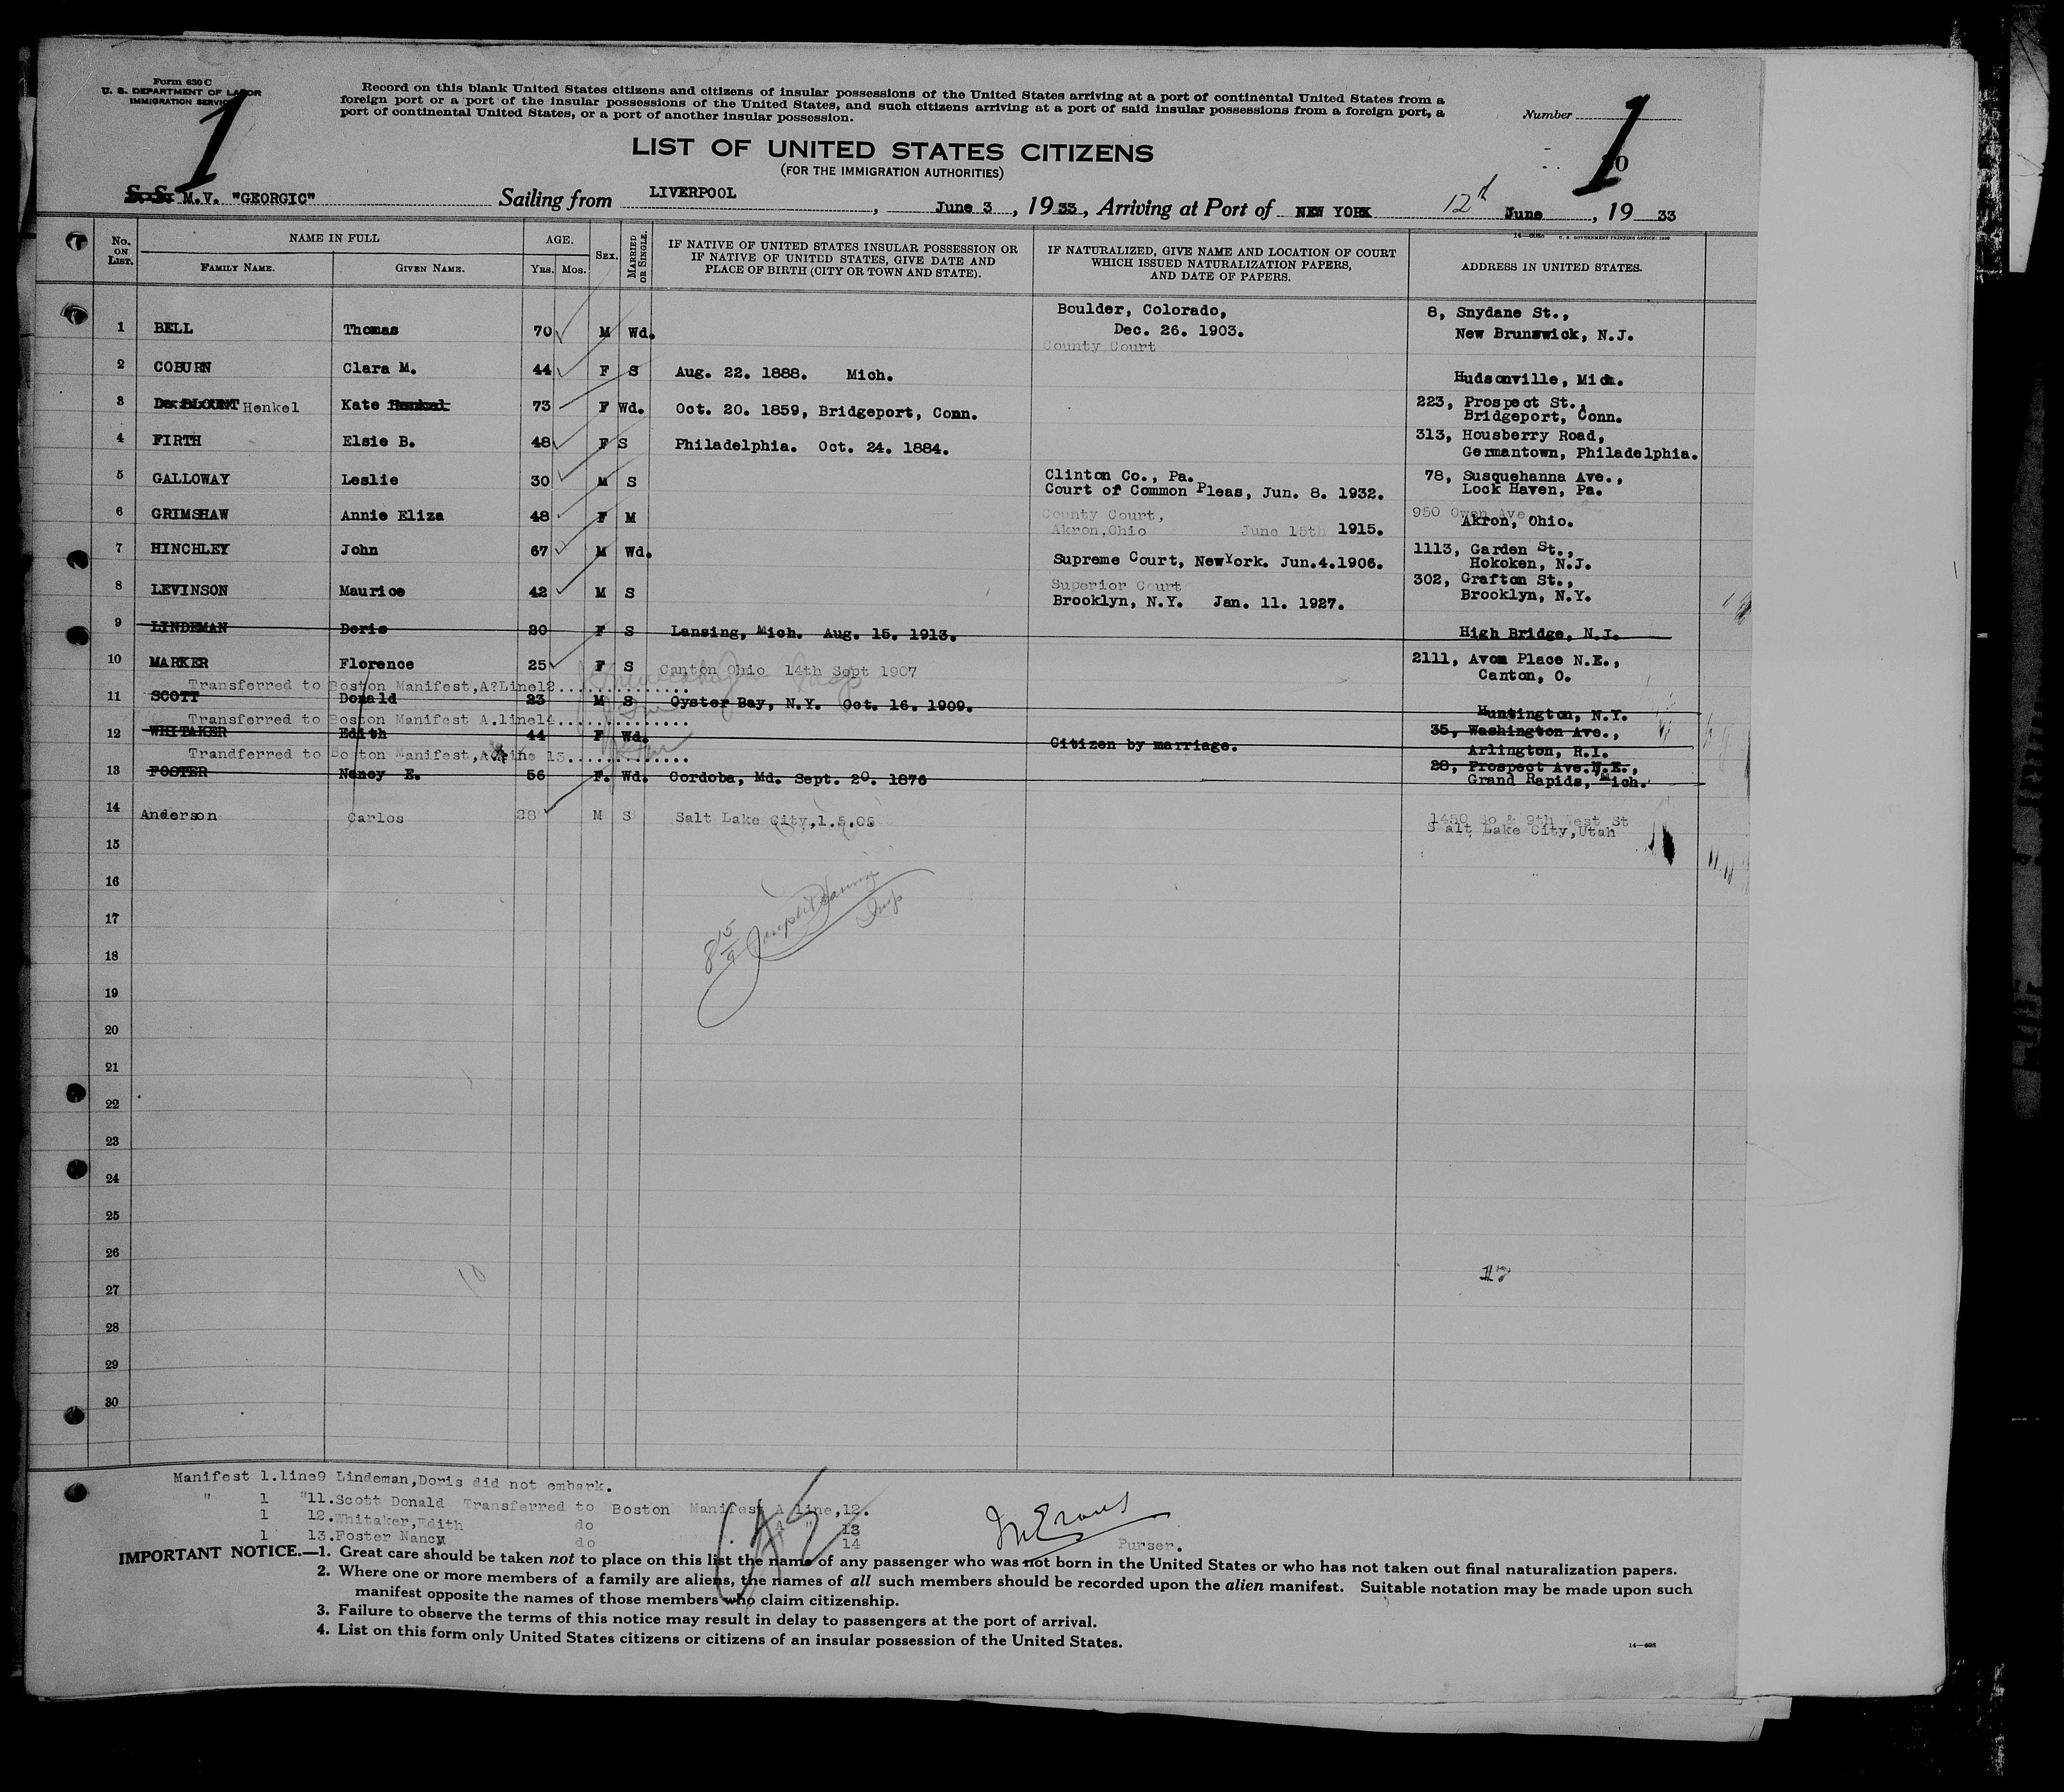 Form 630 C
U. S. DEPARTMENT OF LABOR
IMMIGRATION SERVICE
1
Record on this blank United States citizens and citizens of insular possessions of the United States arriving at a port of continental United States from a
foreign port or a port of the insular possessions of the United States, and such citizens arriving at a port of said insular possessions from a foreign port, a
port of continental United States, or a port of another insular possession.
Number
1
LIST OF UNITED STATES CITIZENS
(FOR THE IMMIGRATION AUTHORITIES)
S. S. M.V. "GEORGIC" Sailing from LIVERPOOL, June 3, 1933, Arriving at Port of NEW YORK 12th June, 19 33
14—6086 U. S. GOVERNMENT PRINTING OFFICE: 1930
No. ON LIST. NAME IN FULL FAMILY NAME. GIVEN NAME. AGE. YRS. MOS. SEX. MARRIED OR SINGLE. IF NATIVE OF UNITED STATES INSULAR POSSESSION OR IF NATIVE OF UNITED STATES, GIVE DATE AND PLACE OF BIRTH (CITY OR TOWN AND STATE). IF NATURALIZED, GIVE NAME AND LOCATION OF COURT WHICH ISSUED NATURALIZATION PAPERS, AND DATE OF PAPERS. ADDRESS IN UNITED STATES.
Boulder, Colorado, 8, Snydane St.,
1 BELL Thomas 70 M Wd. Dec. 26. 1903. New Brunswick, N.J.
County Court
2 COBURN Clara M. 44 F S Aug. 22. 1888. Mich. Hudsonville, Mich.
3 De BLOUNT Henkel Kate Henkel 73 F Wd. Oct. 20. 1859, Bridgeport, Conn. 223, Prospect St.,
Bridgeport, Conn.
4 FIRTH Elsie B. 48 F S Philadelphia. Oct. 24. 1884. 313, Housberry Road,
Germantown, Philadelphia.
5 GALLOWAY Leslie 30 M S Clinton Co., Pa. 78, Susquehanna Ave.,
Court of Common Pleas, Jun. 8. 1932. Lock Haven, Pa.
6 GRIMSHAW Annie Eliza 48 F M County Court, 950 Owen Ave
Akron,Ohio June 15th 1915. Akron, Ohio.
7 HINCHLEY John 67 M Wd. Supreme Court, NewYork. Jun.4.1906. 1113, Garden St.,
Hokoken, N.J.
8 LEVINSON Maurice 42 M S Superior Court 302, Grafton St.,
Brooklyn, N.Y. Jan. 11. 1927. Brooklyn, N.Y.
9 LINDEMAN Doris 20 F S Lansing, Mich. Aug. 15. 1913. High Bridge, N.J.
10 MARKER Florence 25 F S Canton Ohio 14th Sept 1907 2111, Avon Place N.E.,
Canton, O.
Transferred to Boston Manifest,A?Line12..............
11 SCOTT Donald 23 M S Oyster Bay, N.Y. Oct. 16. 1909. Huntington, N.Y.
Transferred to Boston Manifest A.line14..............
12 WHITAKER Edith 44 F Wd. Citizen by marriage. 35, Washington Ave.,
Arlington, R.I.
Trandferred to Boston Manifest,A line 13..............
13 FOSTER Nancy E. 56 F. Wd. Cordoba, Md. Sept. 20. 1876 28, Prospect Ave.N.E.,
Grand Rapids, Mich.
14 Anderson Carlos 28 M S Salt Lake City,1.5.05 1450 So & 9th West St
Salt Lake City,Utah
15
16
17
18
19
20
21
22
23
24
25
26
27
28
29
30
10
17
Manifest 1.line9 Lindeman,Doris did not embark.
" 1 "11.Scott Donald Transferred to Boston Manifest A line,12.
1 12.Whitaker,Edith do A " 13
1 13.Foster Nancy do 14
Purser.
IMPORTANT NOTICE.—1. Great care should be taken not to place on this list the name of any passenger who was not born in the United States or who has not taken out final naturalization papers.
2. Where one or more members of a family are aliens, the names of all such members should be recorded upon the alien manifest. Suitable notation may be made upon such
manifest opposite the names of those members who claim citizenship.
3. Failure to observe the terms of this notice may result in delay to passengers at the port of arrival.
4. List on this form only United States citizens or citizens of an insular possession of the United States.